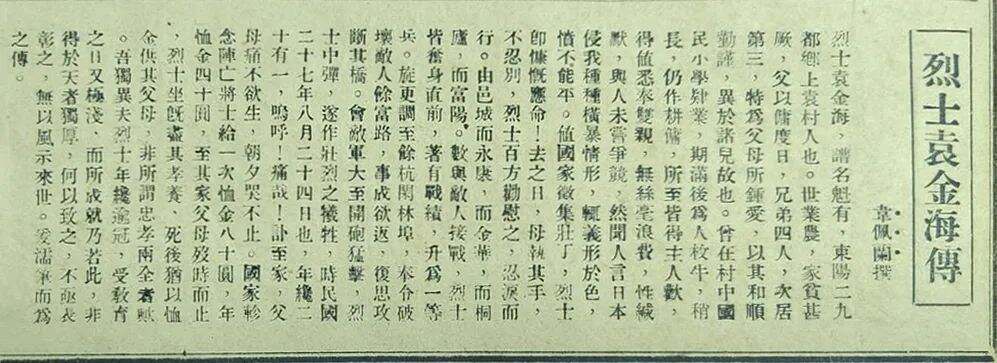 烈士袁金海傳
韋佩蘭撰
烈士袁金海,譜名魁有,東陽二九
都鄉上袁村人也。世業農,家貧甚
厥,父以傭度日,兄弟四人,次居
第三,特爲父母所鍾愛,以其和順
勤謹,異於諸兄故也。曾在村中國
民小學肄業,期滿後爲人牧牛,稍
長,仍作耕傭,所至皆得主人歡,
得値悉奉雙親,無絲毫浪費,性緘
默,與人未嘗爭競,然聞人言日本
侵我種種橫暴情形,輒義形於色,
憤不能平。値國家徵集壯丁,烈士
卽慷慨應命!去之日,母執其手,
不忍別,烈士百方勸慰之,忍淚而
行。由邑城而永康,而金華,而桐
廬,而富陽。數與敵人接戰,烈士
皆奮身直前,著有戰績,升爲一等
兵。旋更調至餘杭閑林埠,奉令破
壞敵人餘富路,事成欲返,復思攻
斷其橋。會敵軍大至開砲猛擊,烈
士中彈,遂作壯烈之犧牲,時民國
二十七年八月二十四日也,年纔二
十有一,嗚呼!痛哉!訃至家,父
母痛不欲生,朝夕哭不止。國家軫
念陣亡將士給一次恤金八十圓,年
恤金四十圓,至其家父母歿時而止
,烈士生旣盡其孝養,死後猶以恤
金供其父母,非所謂忠孝兩全者歟
。吾獨異夫烈士年纔逾冠,受敎育
之日又極淺,而所成就乃若此,非
得於天者獨厚,何以致之,不亟表
彰之,無以風示來世。爰濡筆而爲
之傳。